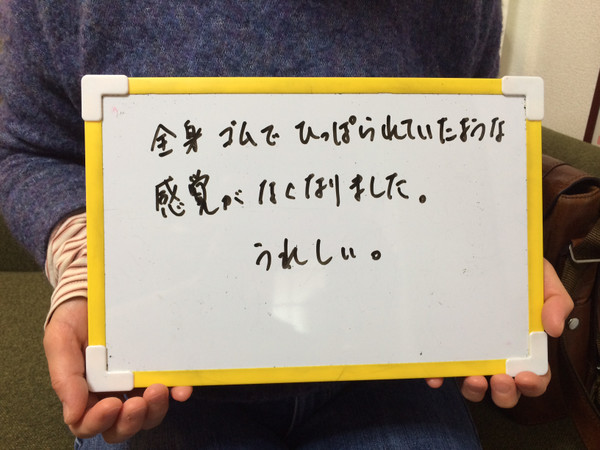 全身 ゴムで ひっぱられていたような
感覚が なくなりました。
うれしい。